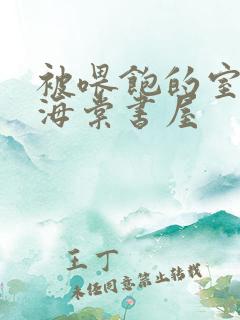 被喂饱的室
海棠书屋
王丁
未经同意禁止转载